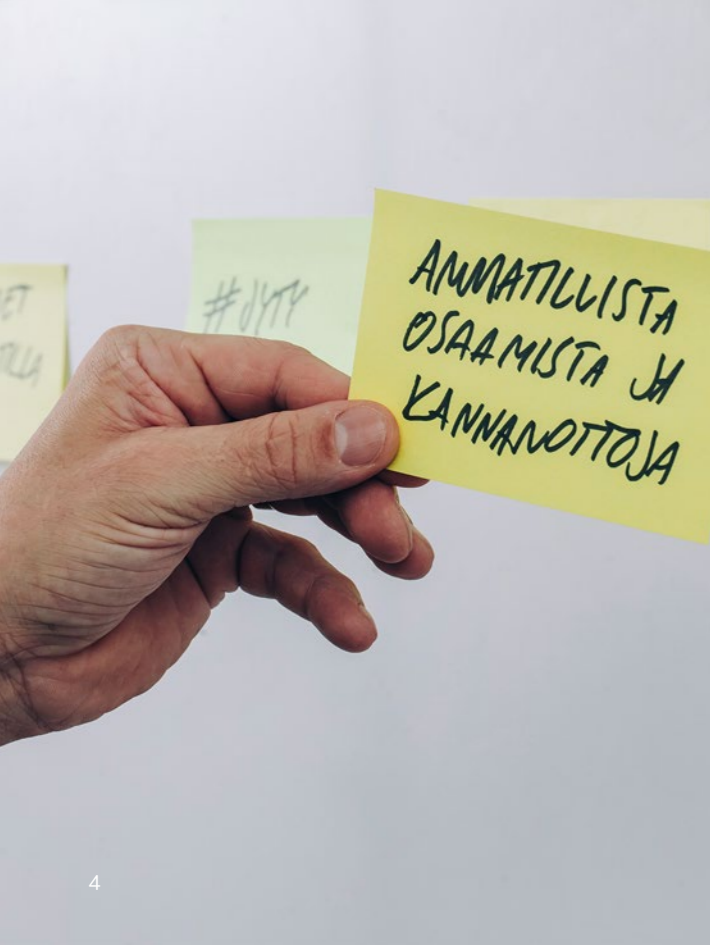 #JYTY
AMMATILLISTA
OSAAMISTA JA
KANNANOTTOJA
4